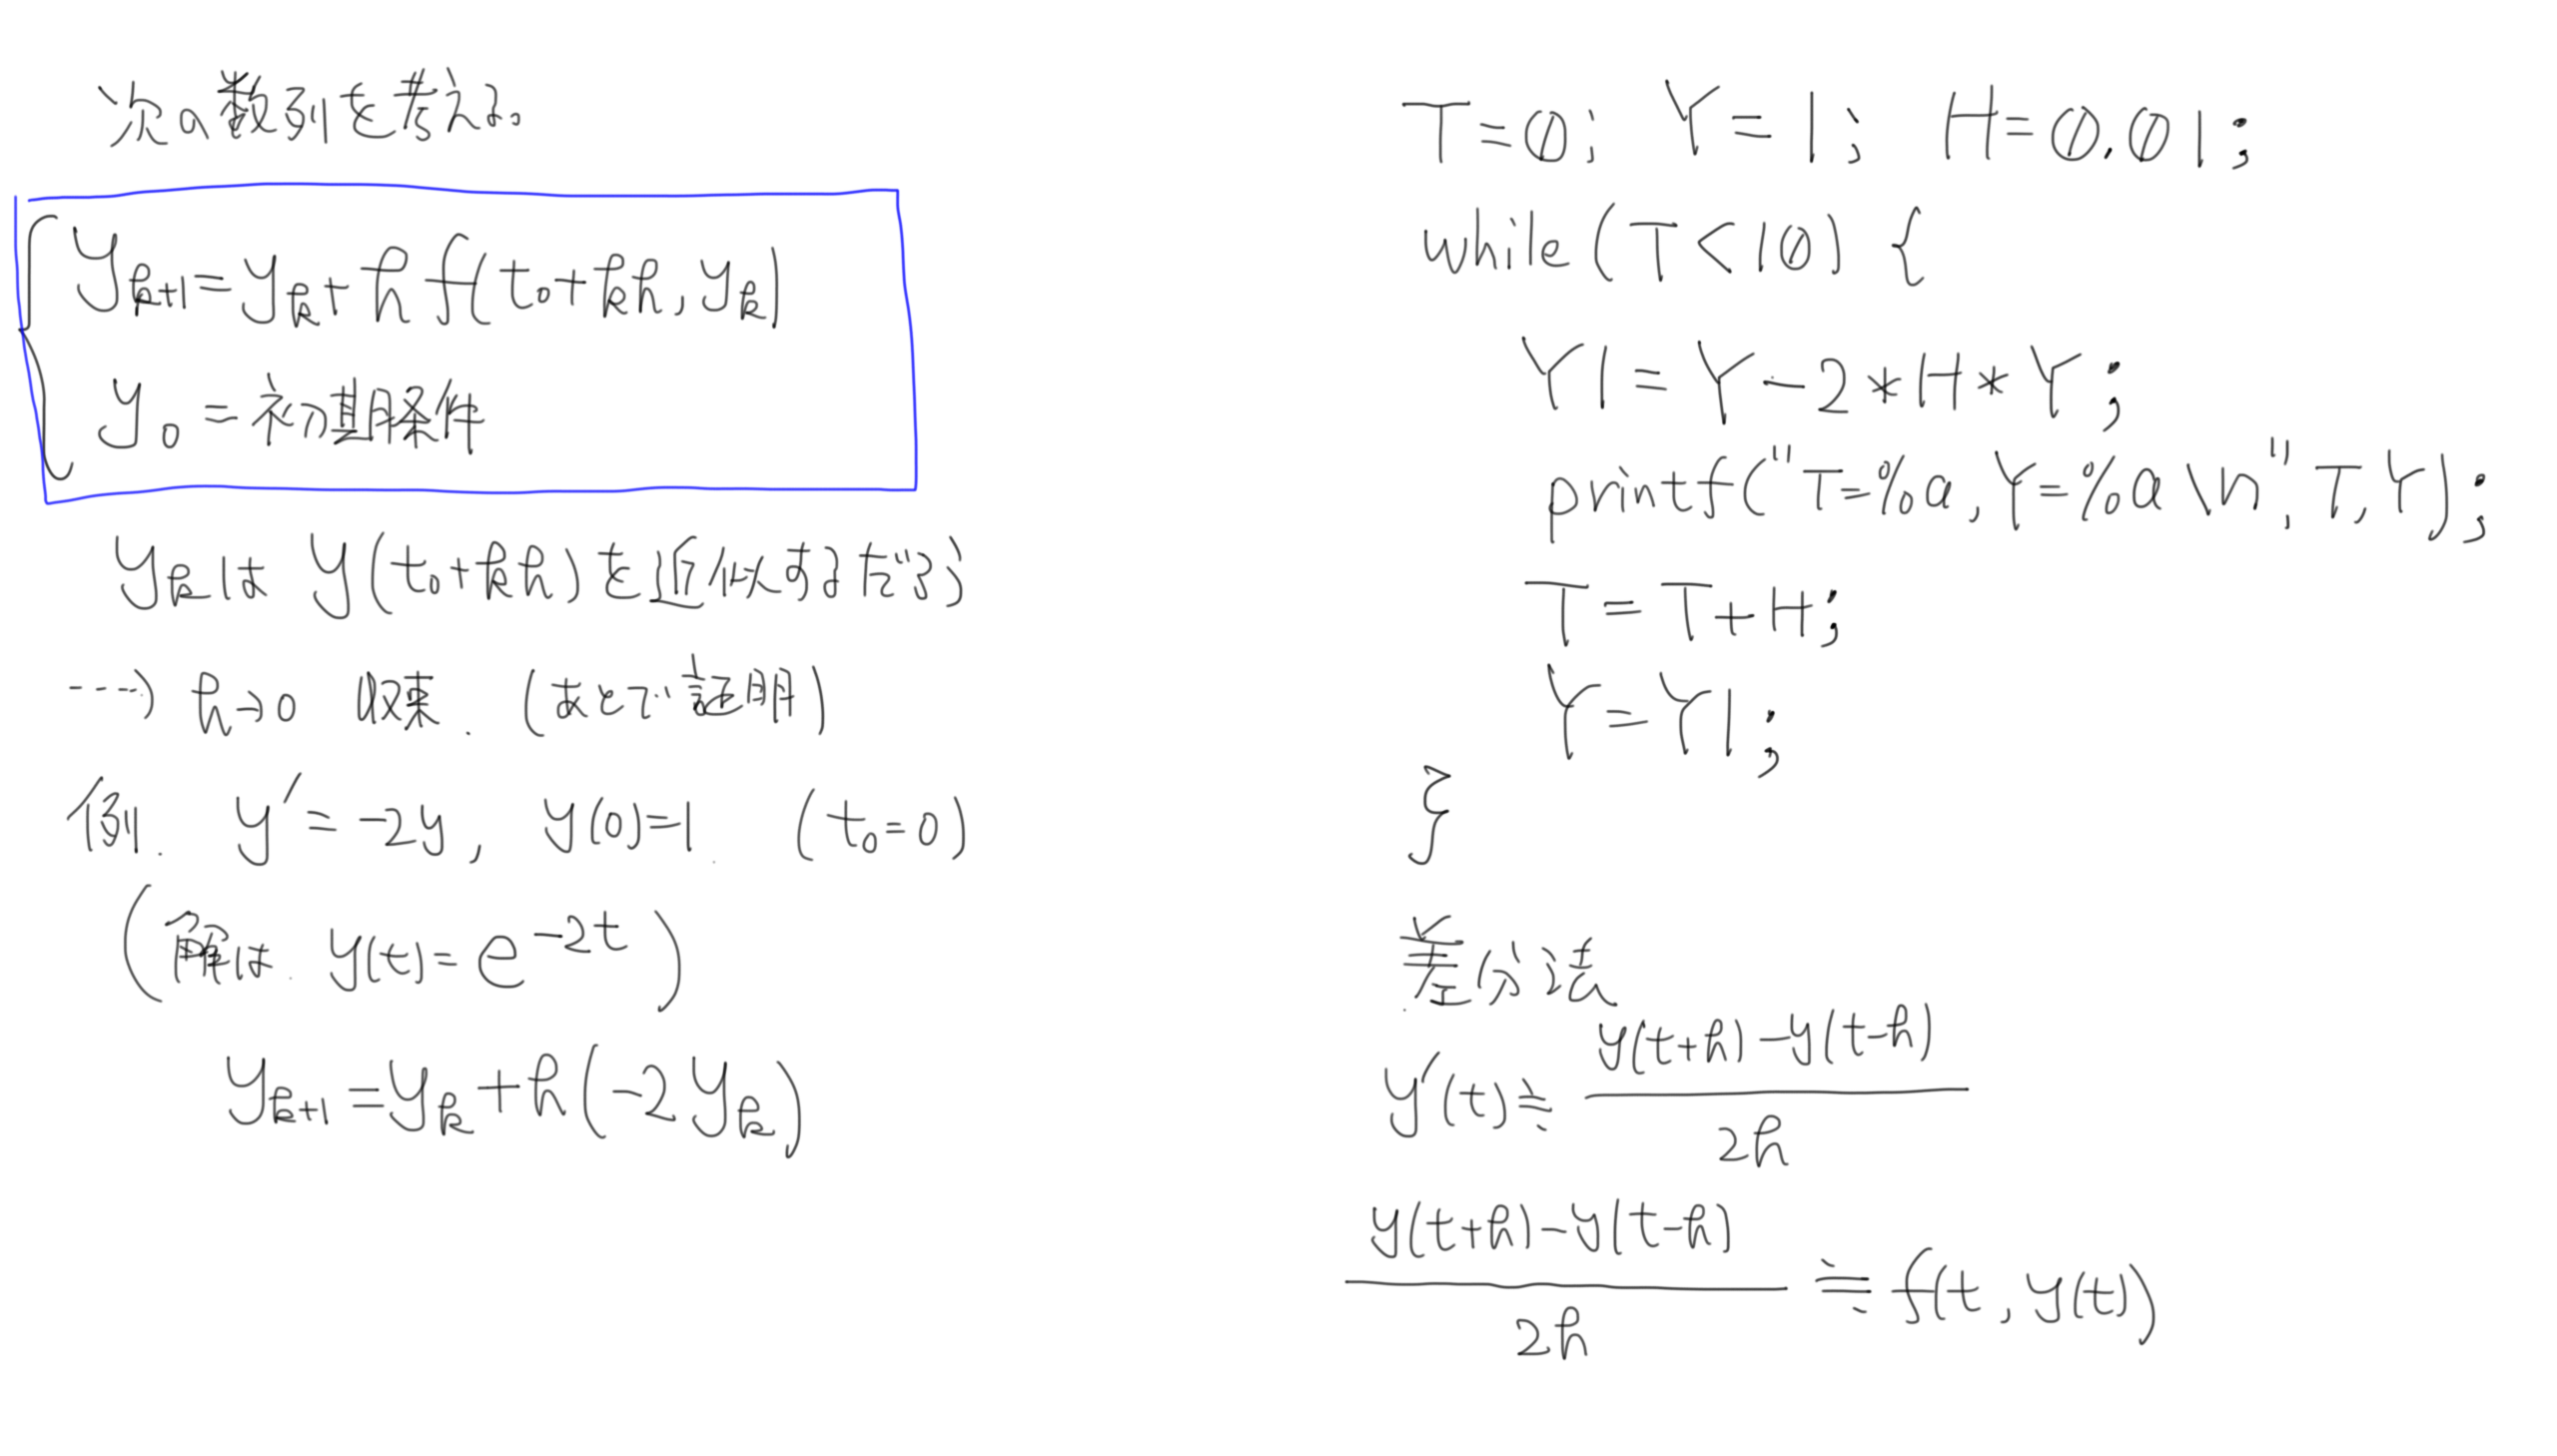 次の数列を考える。
y_{k+1} = y_k + h f(t_0 + kh, y_k)
y_0 = 初期条件
y_k は y(t_0 + kh) を近似するだろう
----→ h→0 収束. (あとで証明)
例. y' = -2y, y(0)=1. (t_0=0)
(解は. y(t) = e^{-2t})
y_{k+1} = y_k + h(-2y_k)
T=0; Y=1; H=0.01;
while(T<10) {
Y1=Y-2*H*Y;
printf("T=%a,Y=%a\n",T,Y);
T=T+H;
Y=Y1;
}
差分法
y'(t) ≒ \frac{y(t+h)-y(t-h)}{2h}
\frac{y(t+h)-y(t-h)}{2h} ≒ f(t, y(t))